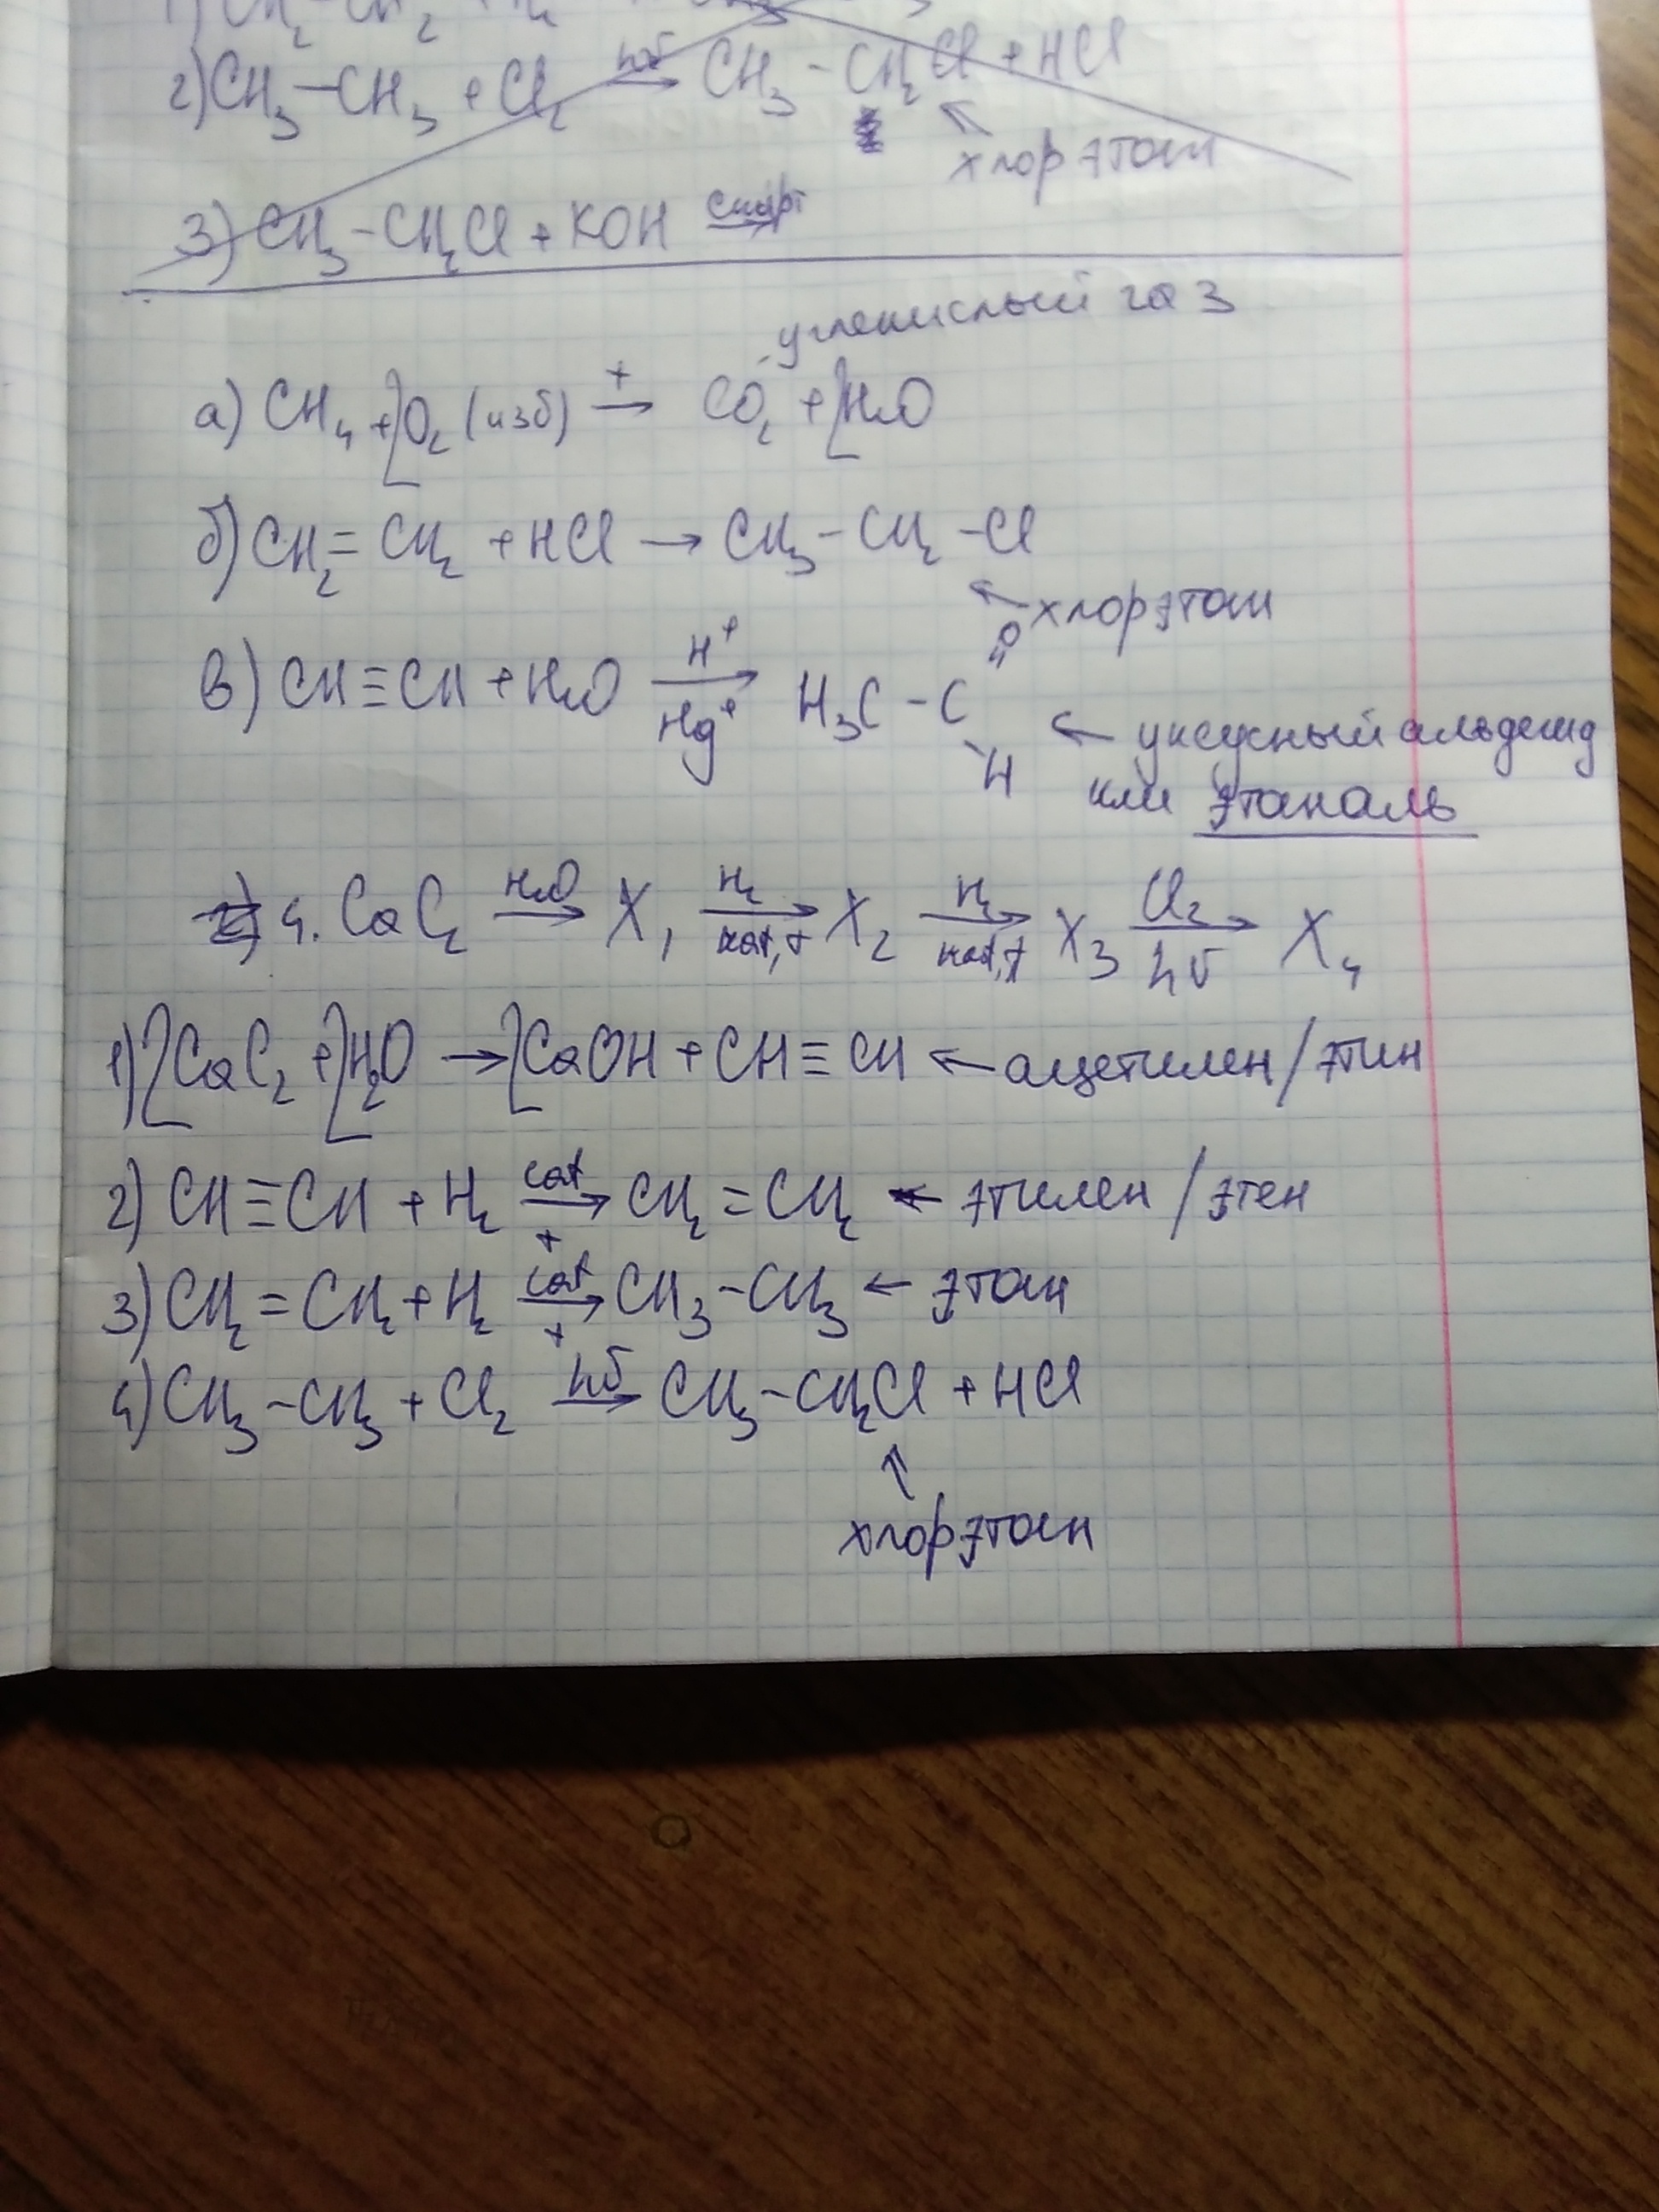 2) CH₃-CH₃ + Cl₂ →(hδ) CH₃-CH₂Cl + HCl
хлорэтан
3) CH₃-CH₂Cl + KOH →(спирт)
углекислый газ
а) CH₄ + 2O₂ (изб) →(t) CO₂ + 2H₂O
б) CH₂=CH₂ + HCl → CH₃-CH₂-Cl
← хлорэтан
в) CH≡CH + H₂O →(H⁺, Hg⁺) H₃C-C=O
-H
← уксусный альдегид
или этаналь
4. CaC₂ →(H₂O) X₁ →(H₂, кат, t) X₂ →(H₂, кат, t) X₃ →(Cl₂, hν) X₄
1) 2CaC₂ + 2H₂O → 2CaOH + CH≡CH ← ацетилен/этин
2) CH≡CH + H₂ →(cat, t) CH₂=CH₂ ← этилен/этен
3) CH₂=CH₂ + H₂ →(cat, t) CH₃-CH₃ ← этан
4) CH₃-CH₃ + Cl₂ →(hδ) CH₃-CH₂Cl + HCl
↑
хлорэтан